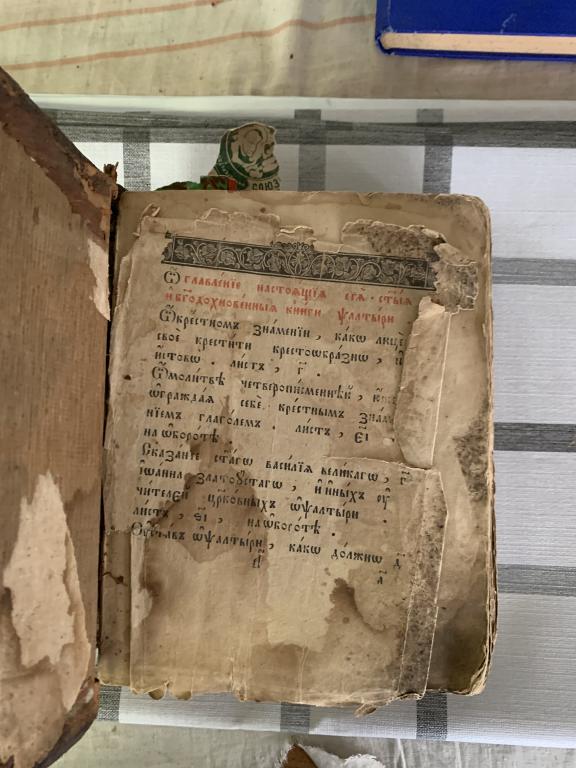 СОЮЗ
Ѡ҆главле́нїе настоѧ́щїѧ сеѧ̀ . ст҃ы́ѧ
и҆ бг҃одохнове́нныѧ кни́ги ѱалты́ри
Ѡ҆ крестномъ зна́менїи , ка́кѡ лицѐ
своѐ крести́ти крестоѡбра́знѡ , и҆
и҆́стовѡ . листъ , г҃ .
Ѡ҆ моли́твѣ четверописменнѣй ,
ѡ҆гражда́ѧ себѐ кре́стнымъ
нїемъ глаго́лемъ . листъ , є҃і
на ѡ҆боро́тѣ
Сказа́нїе ст҃а́гѡ васи́лїѧ вели́кагѡ ,
і҆ѡа́нна златоꙋ́стагѡ , и҆ и҆ны́хъ ᲂу҆
чи́телей цр҃ко́вныхъ ѡ҆ ѱалты́ри .
листъ , є҃і , на ѡ҆боро́тѣ .
Оу҆ста́въ ѡ҆ ѱалты́ри , ка́кѡ до́лжнѡ
а҃